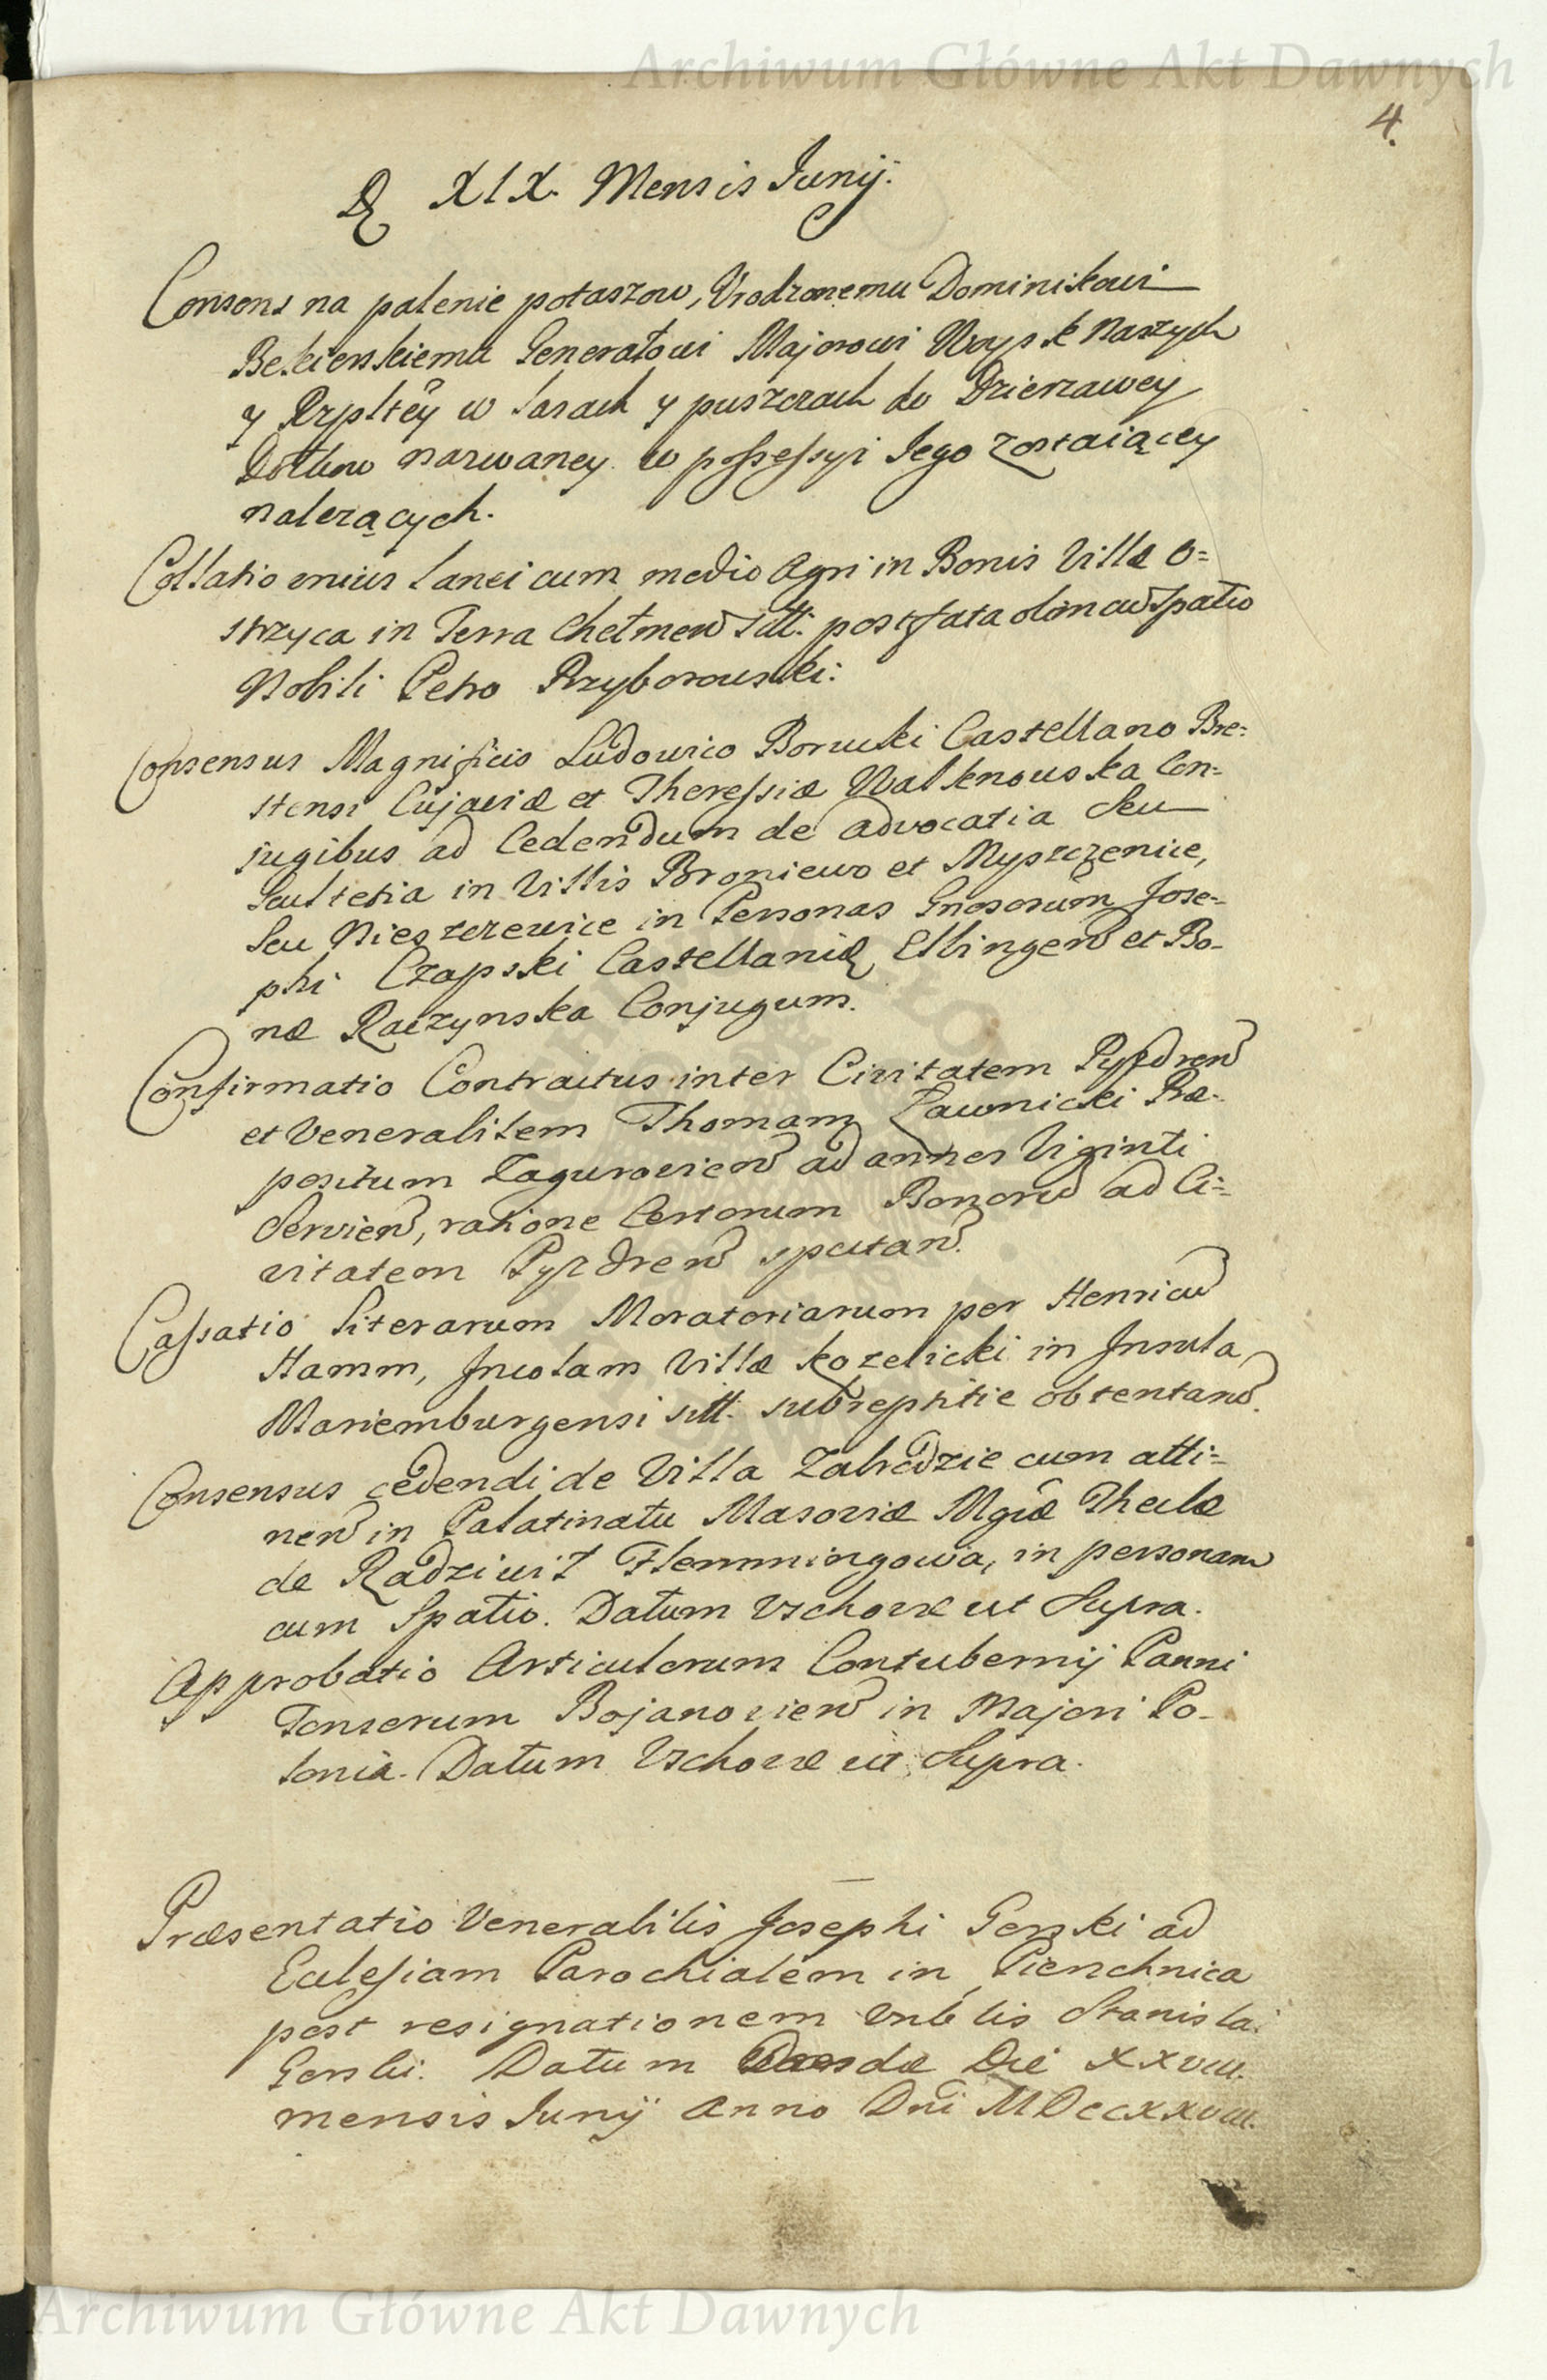 Archiwum Główne Akt Dawnych
4.
D XIX. Mensis Junij.
Consens na palenie potaszow, Urodzonemu Dominikowi
Bekierskiemu Generałowi Majorowi Woysk Naszych
y Rzpltey w lasach y puszczach do Dzierzawey
nazwaney w possessyi Jego zostaiącey
nalezących.
Collatio unius Lanei cum medio Agri in Bonis Villæ O=
strzyca in Terra Chełmen sitt. post fata olim cum Spatio
Nobili Petro Przyborowski.
Consensus Magnificis Ludovico Borucki Castellano Bre=
stensi Cujaviæ et Theressiæ Walknowska Con=
jugibus ad Cedendum de Advocatia Seu
Scultetia in Villis Broniewo et Myszczenice,
Seu Nieszczewice in Personas Gnosorum Jose=
phi Czapski Castellanidæ Elbingen et Bo=
næ Raczynska Conjugum.
Confirmatio Contractus inter Civitatem Pyzdren
et Venerabilem Thomam Ławnicki Præ=
positum Zagurovien ad annos Viginti
Servien, ratione Certorum Bonorum ad Ci=
vitatem Pyzdren spectan.
Cassatio Literarum Moratoriarum per Henricum
Hamm, Incolam Villæ Kozelicki in Insula
Mariemburgensi sitt. subreptitie obtentarum.
Consensus cedendi de Villa Zabrodzie cum atti=
nen in Palatinatu Masoviæ Mgcæ Theclæ
de Radziwił Flemmingowa, in personam
cum Spatio. Datum Vschovæ ut Supra.
Approbatio Articulorum Contubernij Panni
Tonsorum Bojanovien in Majori Po=
lonia. Datum Vschovæ ut Supra.
Præsentatio Venerabilis Josephi Gorski ad
Ecclesiam Parochialem in Pienchnica
post resignationem Vnblis Stanislai
Gorski. Datum Die XXVIII.
mensis Junij Anno Dni MDCCXXVIII.
Archiwum Główne Akt Dawnych